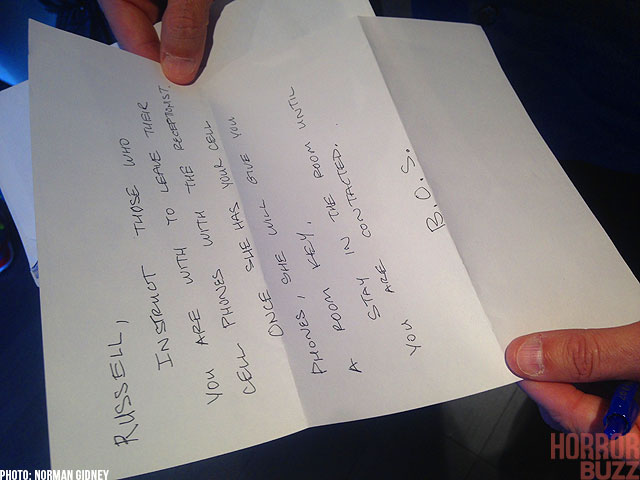 RUSSELL,
INSTRUCT THOSE WHO
YOU ARE WITH TO LEAVE THEIR
CELL PHONES WITH THE RECEPTIONIST.
ONCE SHE HAS YOUR CELL
PHONES, SHE WILL GIVE YOU
A ROOM KEY.
STAY IN THE ROOM UNTIL
YOU ARE CONTACTED.
B.O.S.
HORROR
BUZZ
PHOTO: NORMAN GIDNEY